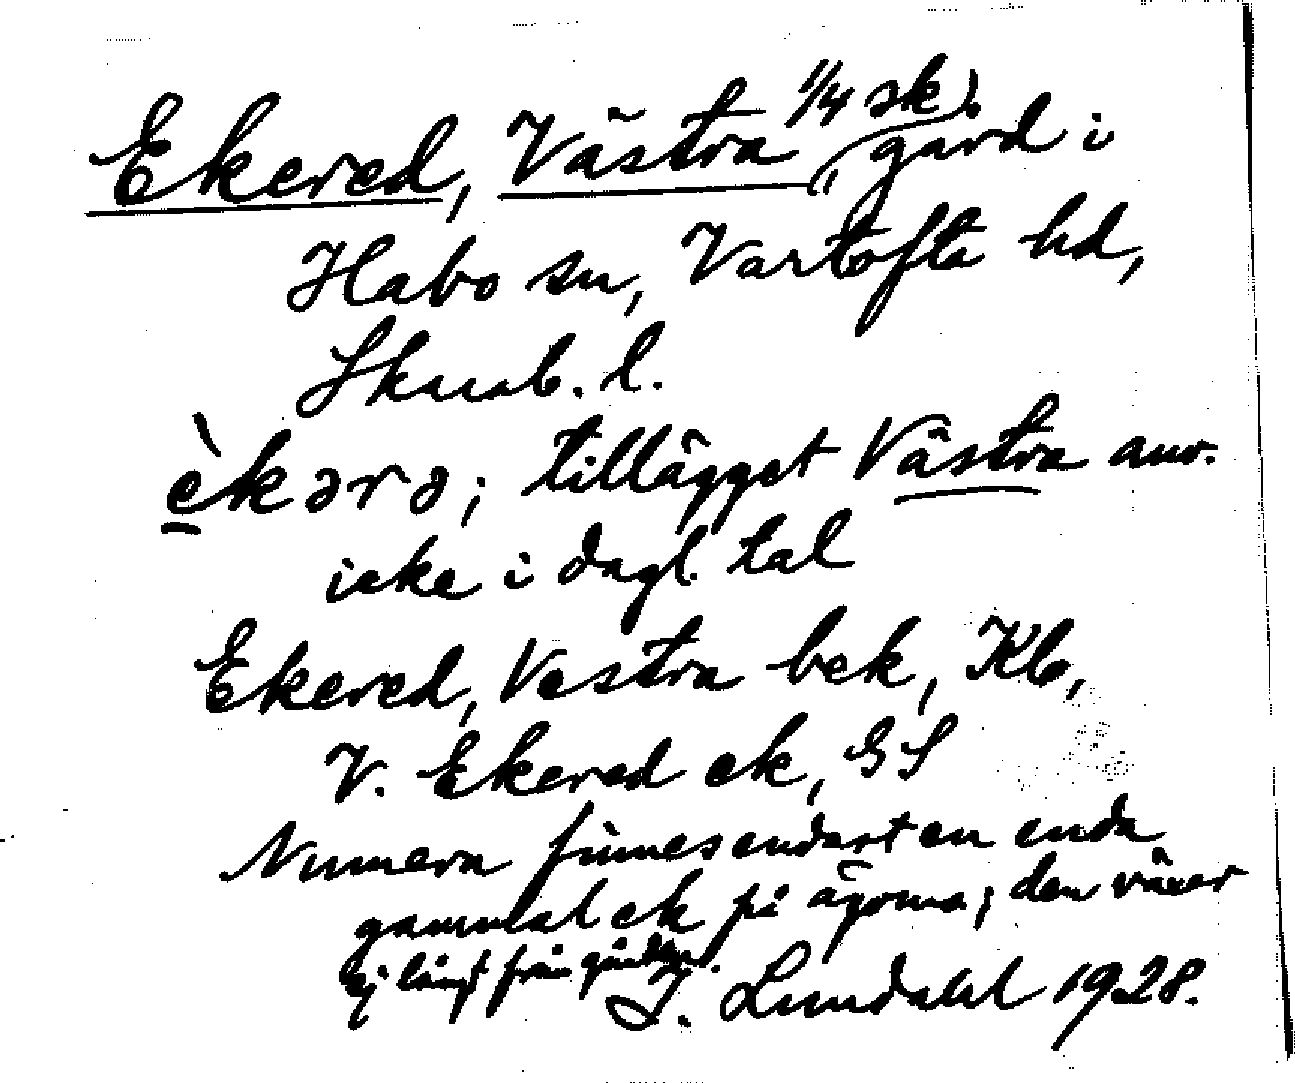 Ekered, Västra (1/4 sk), gård i
Habo sn, Vartofta hd,
Skarab. l.
èkərə; tillägget Västra anv.
icke i dagl. tal
Ekered, Vestra bek, Kb,
V. Ekered ek, GS
Numera finnes endast en enda
gammal ek på ägorna; den växer
ej långt från gården.
J. Lundahl 1928.